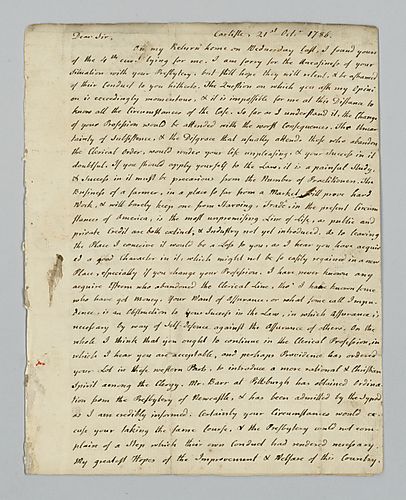 Carlisle, 21st Octr. 1786.
Dear Sir,
On my Return home on Wednesday last, I found yours
of the 4th curr.t lying for me. I am sorry for the Uneasiness of your
Situation with your Presbytery, but still hope they will relent, & be ashamed
of their Conduct to you hitherto. The Question on which you ask my Opini-
on is exceedingly momentous, & it is impossible for me at this Distance to
know all the Circumstances of the Case. So far as I understand it, the Change
of your Profession would be attended with the worst Consequences. The Uncer-
tainty of Subsistence, & the Disgrace that usually attends those who abandon
the Clerical Order, would render your life unpleasing, & your Success in it
doubtful. If you should apply yourself to the Law, it is a painful Study,
& Success in it must be precarious from the Number of Practitioners. The
Business of a farmer, in a place so far from a Market, will prove hard
Work, & will barely keep one from Starving. Trade, in the present Circum-
stances of America, is the most unpromising Line of Life, as public and
private Credit are both extinct, & Industry not yet introduced. As to leaving
the Place I conceive it would be a Loss to you, as I hear you have acquir-
ed a good Character in it, which might not be so easily regained in a new
Place, especially if you change your Profession. I have never known any
acquire Esteem who abandoned the Clerical Line, tho' I have known some
who have got Money. Your Want of Assurance, or what some call Impu-
dence, is an Obstruction to your Success in the Law, in which Assurance is
necessary by way of Self-Defence against the Assurance of others. On the
whole I think that you ought to continue in the Clerical Profession, in
which I hear you are acceptable, and perhaps Providence has ordered
your Lot in these western Parts, to introduce a more rational & Christian
Spirit among the Clergy. Mr. Barr at Pittsburgh has obtained ordina-
tion from the Presbytery of Newcastle, & has been admitted by the Synod
as I am credibly informed. Certainly your Circumstances would ex-
cuse your taking the same Course, & the Presbytery could not com-
plain of a Step which their own Conduct had rendered necessary.
My greatest Hopes of the Improvement & Welfare of this Country,